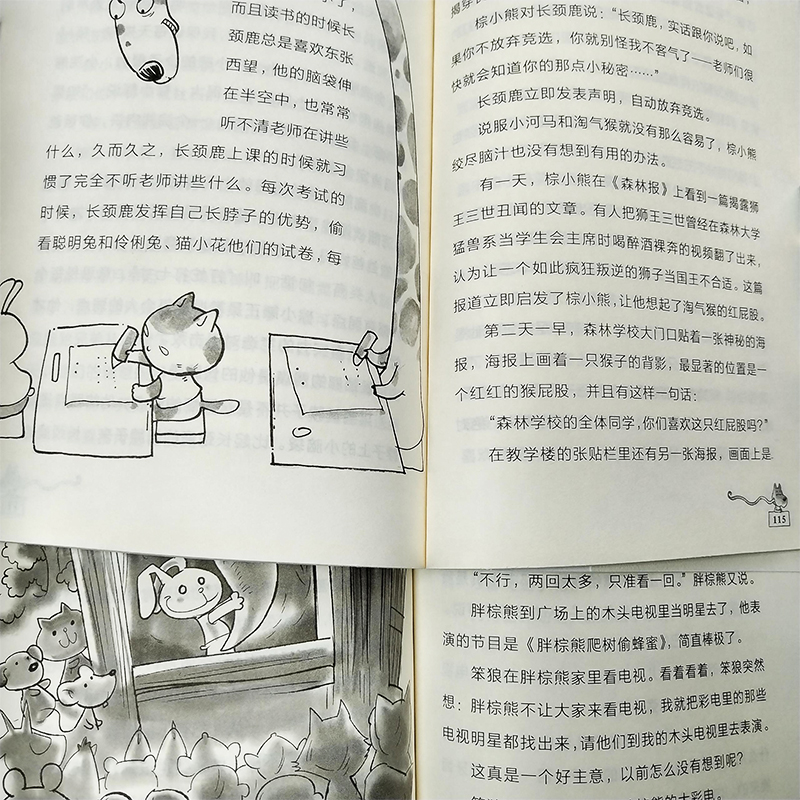 而且读书的时候长
颈鹿总是喜欢东张
西望，他的脑袋伸
在半空中，也常常
听不清老师在讲些
什么，久而久之，长颈鹿上课的时候就习
惯了完全不听老师讲些什么。每次考试的
时候，长颈鹿发挥自己长脖子的优势，偷
看聪明兔和伶俐兔、猫小花他们的试卷，每
棕小熊对长颈鹿说：“长颈鹿，实话跟你说吧，如
果你不放弃竞选，你就别怪我不客气了——老师们很
快就会知道你的那点小秘密……”
长颈鹿立即发表声明，自动放弃竞选。
说服小河马和淘气猴就没有那么容易了，棕小熊
绞尽脑汁也没有想到有用的办法。
有一天，棕小熊在《森林报》上看到一篇揭露狮
王三世丑闻的文章。有人把狮王三世曾经在森林大学
猛兽系当学生会主席时喝醉酒裸奔的视频翻了出来，
认为让一个如此疯狂叛逆的狮子当国王不合适。这篇
报道立即启发了棕小熊，让他想起了淘气猴的红屁股。
第二天一早，森林学校大门口贴着一张神秘的海
报，海报上画着一只猴子的背影，最显著的位置是一
个红红的猴屁股，并且有这样一句话：
“森林学校的全体同学，你们喜欢这只红屁股吗？”
在教学楼的张贴栏里还有另一张海报，画面上是
115
“不行，两回太多，只准看一回。”胖棕熊又说。
胖棕熊到广场上的木头电视里当明星去了，他表
演的节目是《胖棕熊爬树偷蜂蜜》，简直棒极了。
笨狼在胖棕熊家里看电视。看着看着，笨狼突然
想：胖棕熊不让大家来看电视，我就把彩电里的那些
电视明星都找出来，请他们到我的木头电视里去表演。
这真是一个好主意，以前怎么没有想到呢？